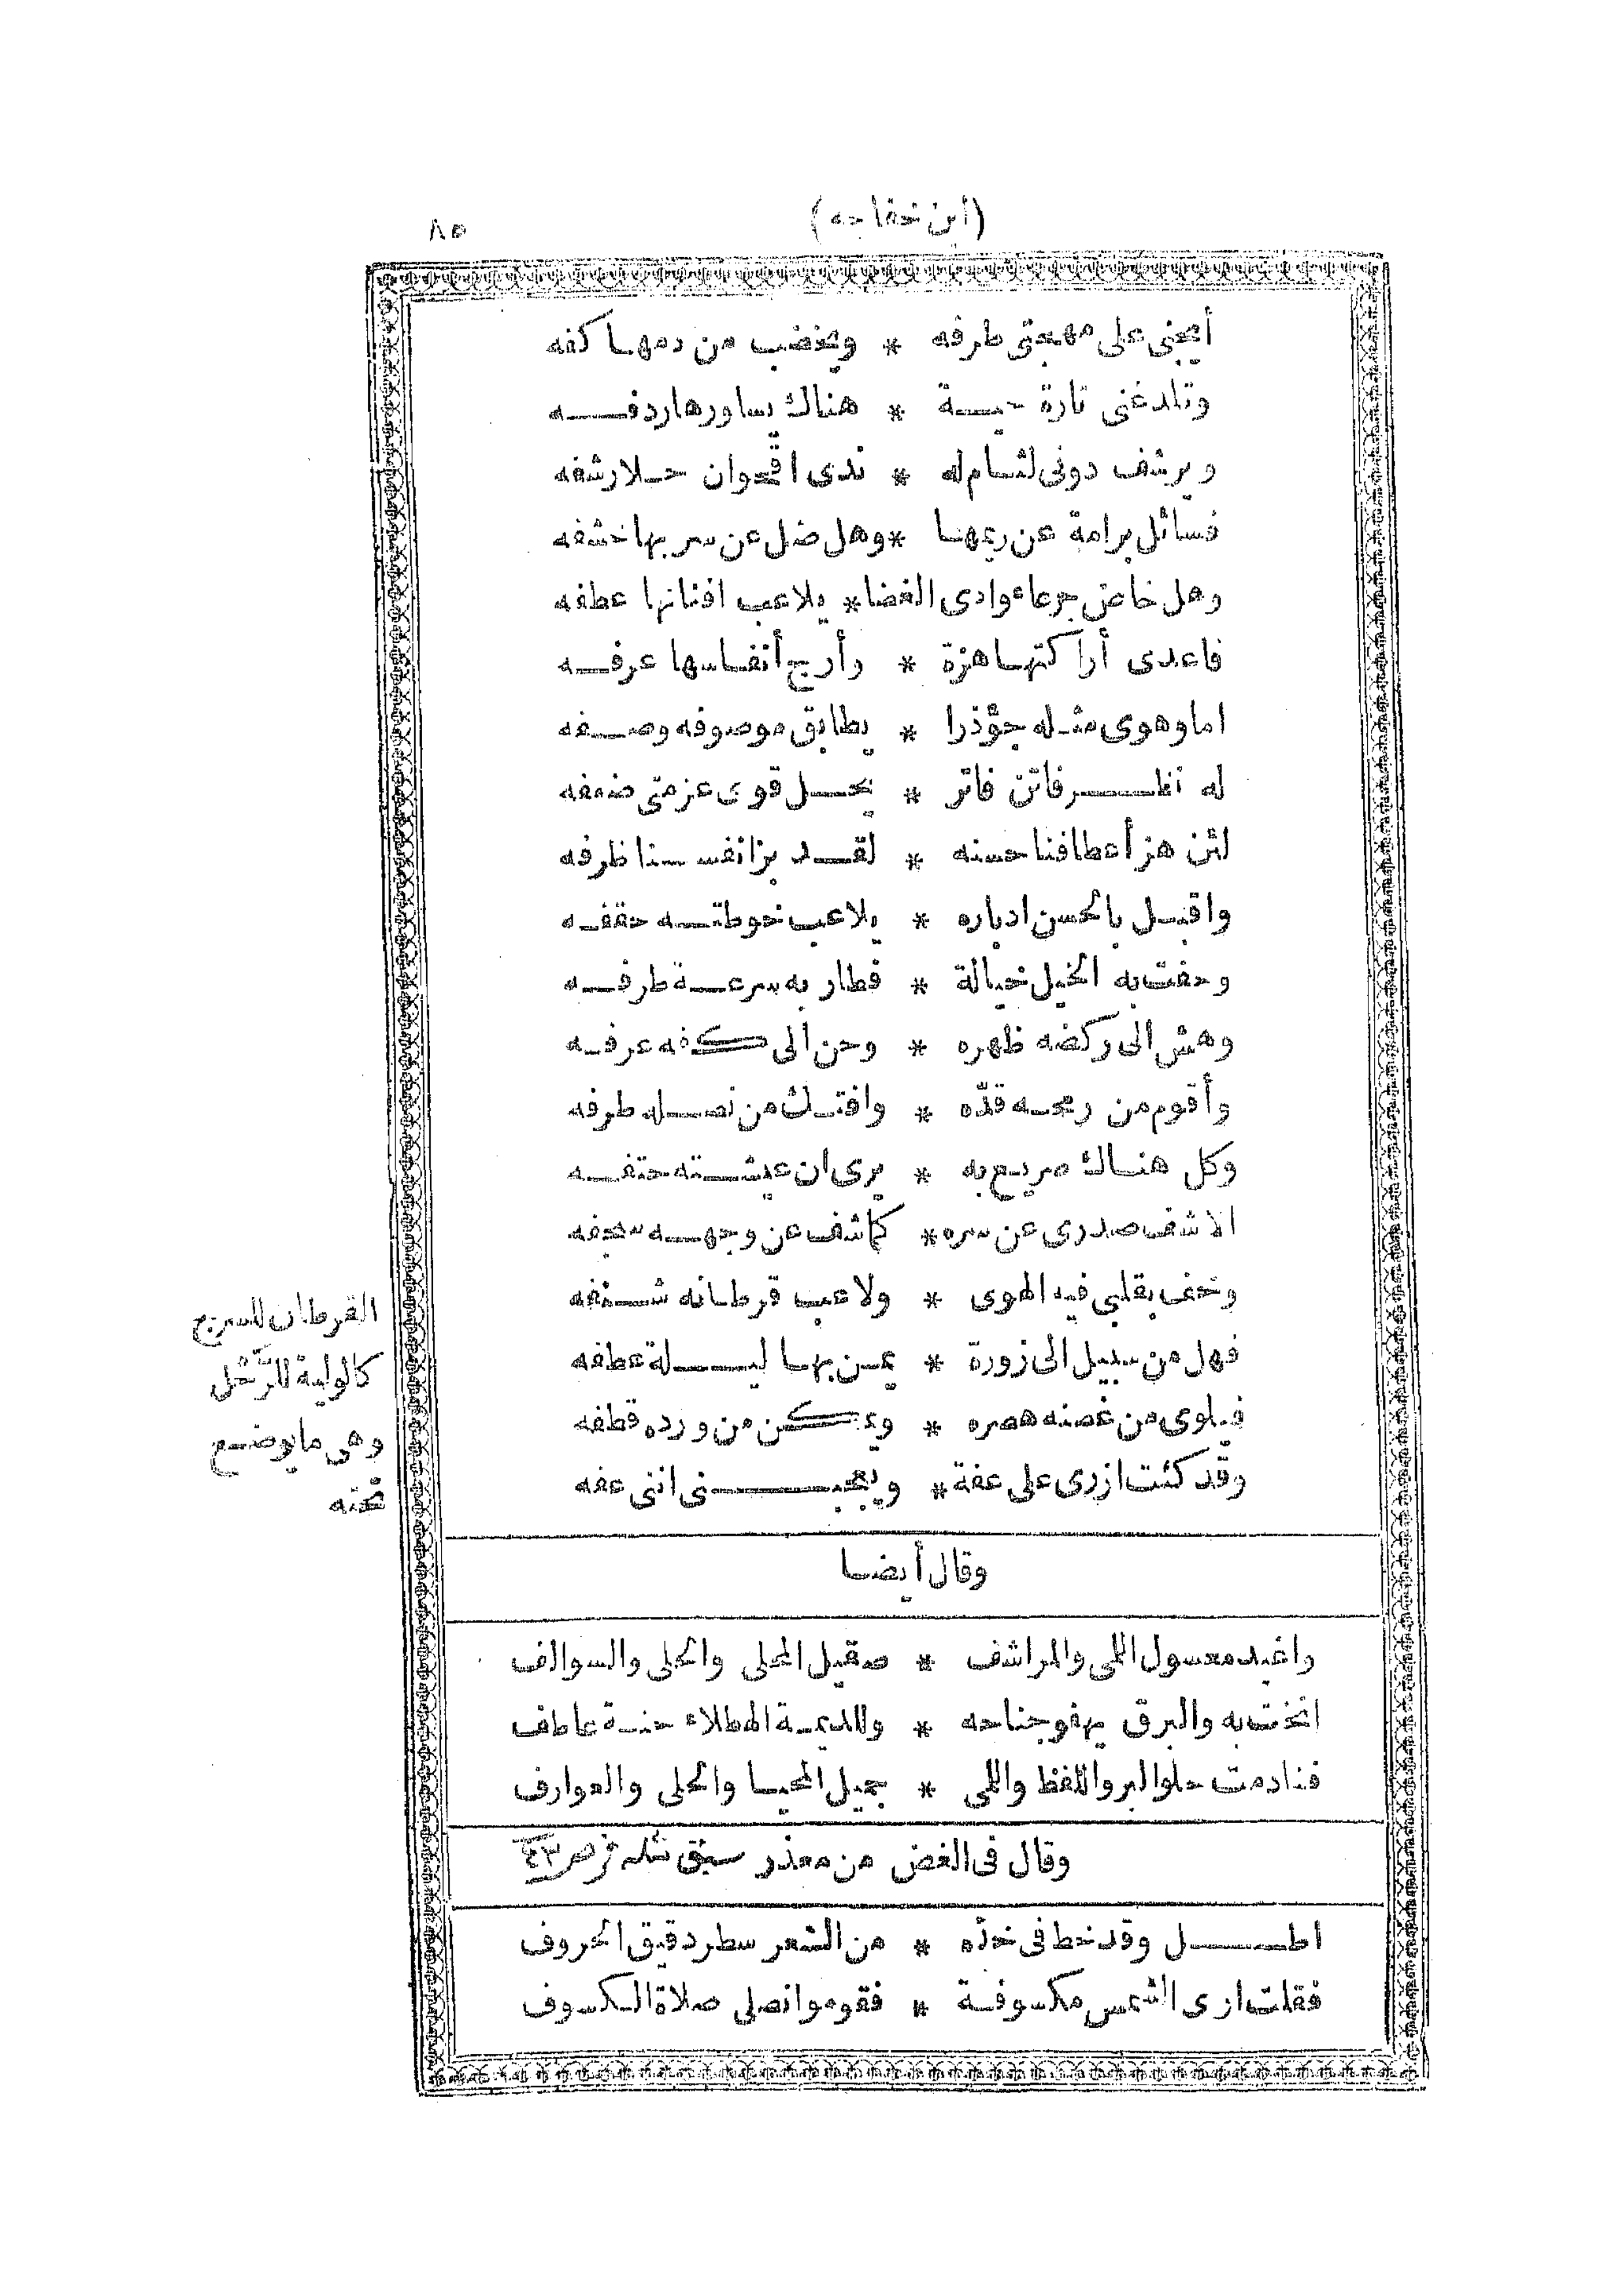 (ابن خفاجه)
٨٥
أيجنى على مهجتى طرفه * ويخضب من دمها كفه
وتلدغنى تارة حية * هناك يساورها ردفه
ويرشف دونى لثام له * ندى اقحوان حلا رشفه
فسائل برامة عن ريمها * وهل ضل عن سربها خشفه
وهل خاض جرعاء وادى الغضا * يلاعب افنانها عطفه
فاعدى أراكتها هزة * وأرج أنفاسها عرفه
اما وهوى مثله جؤذرا * يطابق موصوفه وصفه
له نظر فاتن فاتر * يحل قوى عزمتى ضعفه
لئن هز أعطافنا حسنه * لقد بزانفسنا ظرفه
واقبل بالحسن ادباره * يلاعب خوطته حقفه
وحفت به الخيل خيالة * فطار به سرعة طرفه
وهش الى ركضه ظهره * وحن الى كفه عرفه
وأقوم من رمحه قدّه * وافتك من نصله طرفه
وكل هناك صريع به * يرى ان عيشته حتفه
الا شف صدرى عن سره * كما شف عن وجهه سجفه
وخفى بقلبى فيه الهوى * ولاعب قرطانه شنفه
فهل من سبيل الى زورة * يمن بها ليلة عطفه
فيلوى من غصنه هصره * ويمكن من ورده قطفه
وقد كنت ازرى على عفة * ويعجبنى اننى عفه
القرطان للسرج
كالولية للرَّحْل
وهى ما يوضع
تحته
وقال أيضا
واغيد معسول اللمى والمراشف * صقيل المحلى والحلى والسوالف
انخت به والبرق يهفو جناحه * وللديمة الهطلاء حنة عاطف
فنادمت حلو البر واللفظ واللمى * جميل المحيا والحلى والعوارف
وقال فى الغض من معذر سبق مثله فى ص ٤٣
اطل وقد خط فى خدّه * من الشعر سطر دقيق الحروف
فقلت ارى الشمس مكسوفة * فقوموا نصلى صلاة الكسوف